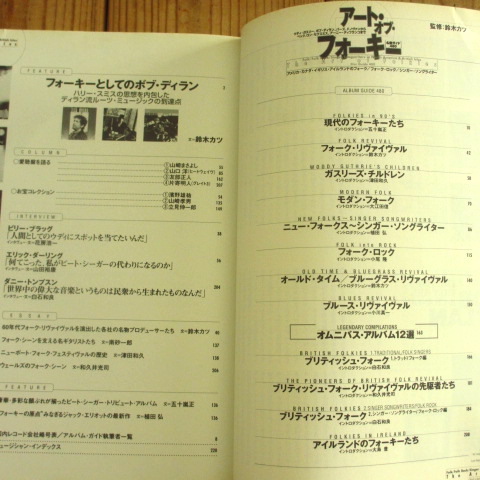 FEATURE
フォーキーとしてのボブ・ディラン
ハリー・スミスの思想を内包した、
ディラン流ルーツ・ミュージックの到達点
文=鈴木カツ
COLUMN
○愛聴盤を語る
①山崎まさよし
②山口 洋(ヒートウェイヴ)
③友部正人
④片寄明人(グレイト3)
○お宝コレクション
①浜野雄祐
②山崎孝男
③立見伸一郎
INTERVIEW
ビリー・ブラッグ
「人間としてのウディにスポットを当てたいんだ」
エリック・ダーリング
「何てこった、私がピート・シーガーの代わりになるのか」
インタヴュー=山田裕康
ダニー・トンプスン
「世界中の偉大な音楽というものは民衆から生まれたものなんだ」
インタヴュー=白石和良
ESSAY
60年代フォーク・リヴァイヴァルを演出した各社の名物プロデューサーたち 文=鈴木カツ
フォーク・シーンを支える名ギタリストたち 文=奥砂一郎
ニューポート・フォーク・フェスティヴァルの歴史 文=津田和久
ウェールズのフォーク・シーン 文=和久井光司
FEATURE
豪華・多彩な顔ぶれが揃ったピート・シーガー・トリビュート・アルバム 文=五十嵐正
フォーキーの原点"みなぎるジャック・エリオットの最新作 文=植田 弘
国内レコード会社略号表/アルバム・ガイド執筆者一覧
ミュージシャン・インデックス
アート・オブ・フォーキー
監修:鈴木カツ
アメリカ・カナダ・イギリス・アイルランドのフォーク/フォーク・ロック/シンガー・ソングライター
ALBUM GUIDE 460
FOLKIES in 90'S
現代のフォーキーたち
イントロダクション=五十嵐正
FOLK REVIVAL
フォーク・リヴァイヴァル
イントロダクション=鈴木カツ
WOODY GUTHRIE'S CHILDREN
ガスリーズ・チルドレン
イントロダクション=津田和久
MODERN FOLK
モダン・フォーク
イントロダクション=大江田信
NEW FOLKS~SINGER SONGWRITERS
ニュー・フォークス~シンガー・ソングライター
イントロダクション=植田 弘
FOLK into ROCK
フォーク・ロック
イントロダクション=小尾 隆
OLD TIME & BLUEGRASS REVIVAL
オールド・タイム/ブルーグラス・リヴァイヴァル
BLUES REVIVAL
ブルース・リヴァイヴァル
イントロダクション=小川真一
LEGENDARY COMPILATIONS
オムニバス・アルバム12選
BRITISH FOLKIES 1.TRADITIONAL FOLK SINGERS
ブリティッシュ・フォーク 1.トラッド/フォーク編
イントロダクション=白石和良
THE PIONEERS OF BRITISH FOLK REVIVAL
ブリティッシュ・フォーク・リヴァイヴァルの先駆者たち
イントロダクション=和久井光司
BRITISH FOLKIES 2.SINGER SONGWRITERS/FOLK ROCK
ブリティッシュ・フォーク 2.シンガー・ソングライター/フォーク・ロック編
イントロダクション=白石和良
FOLKIES in IRELAND
アイルランドのフォーキーたち
イントロダクション=大島 豊